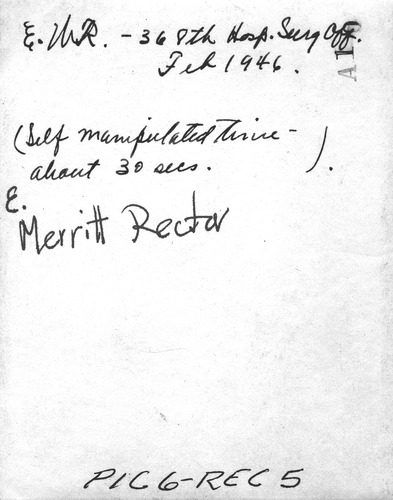 E. MR. - 368th Hosp. Surg Off.
Feb 1946.
(Self manipulated time -
about 30 secs. ).
E.
Merritt Rector
PIC6-REC5